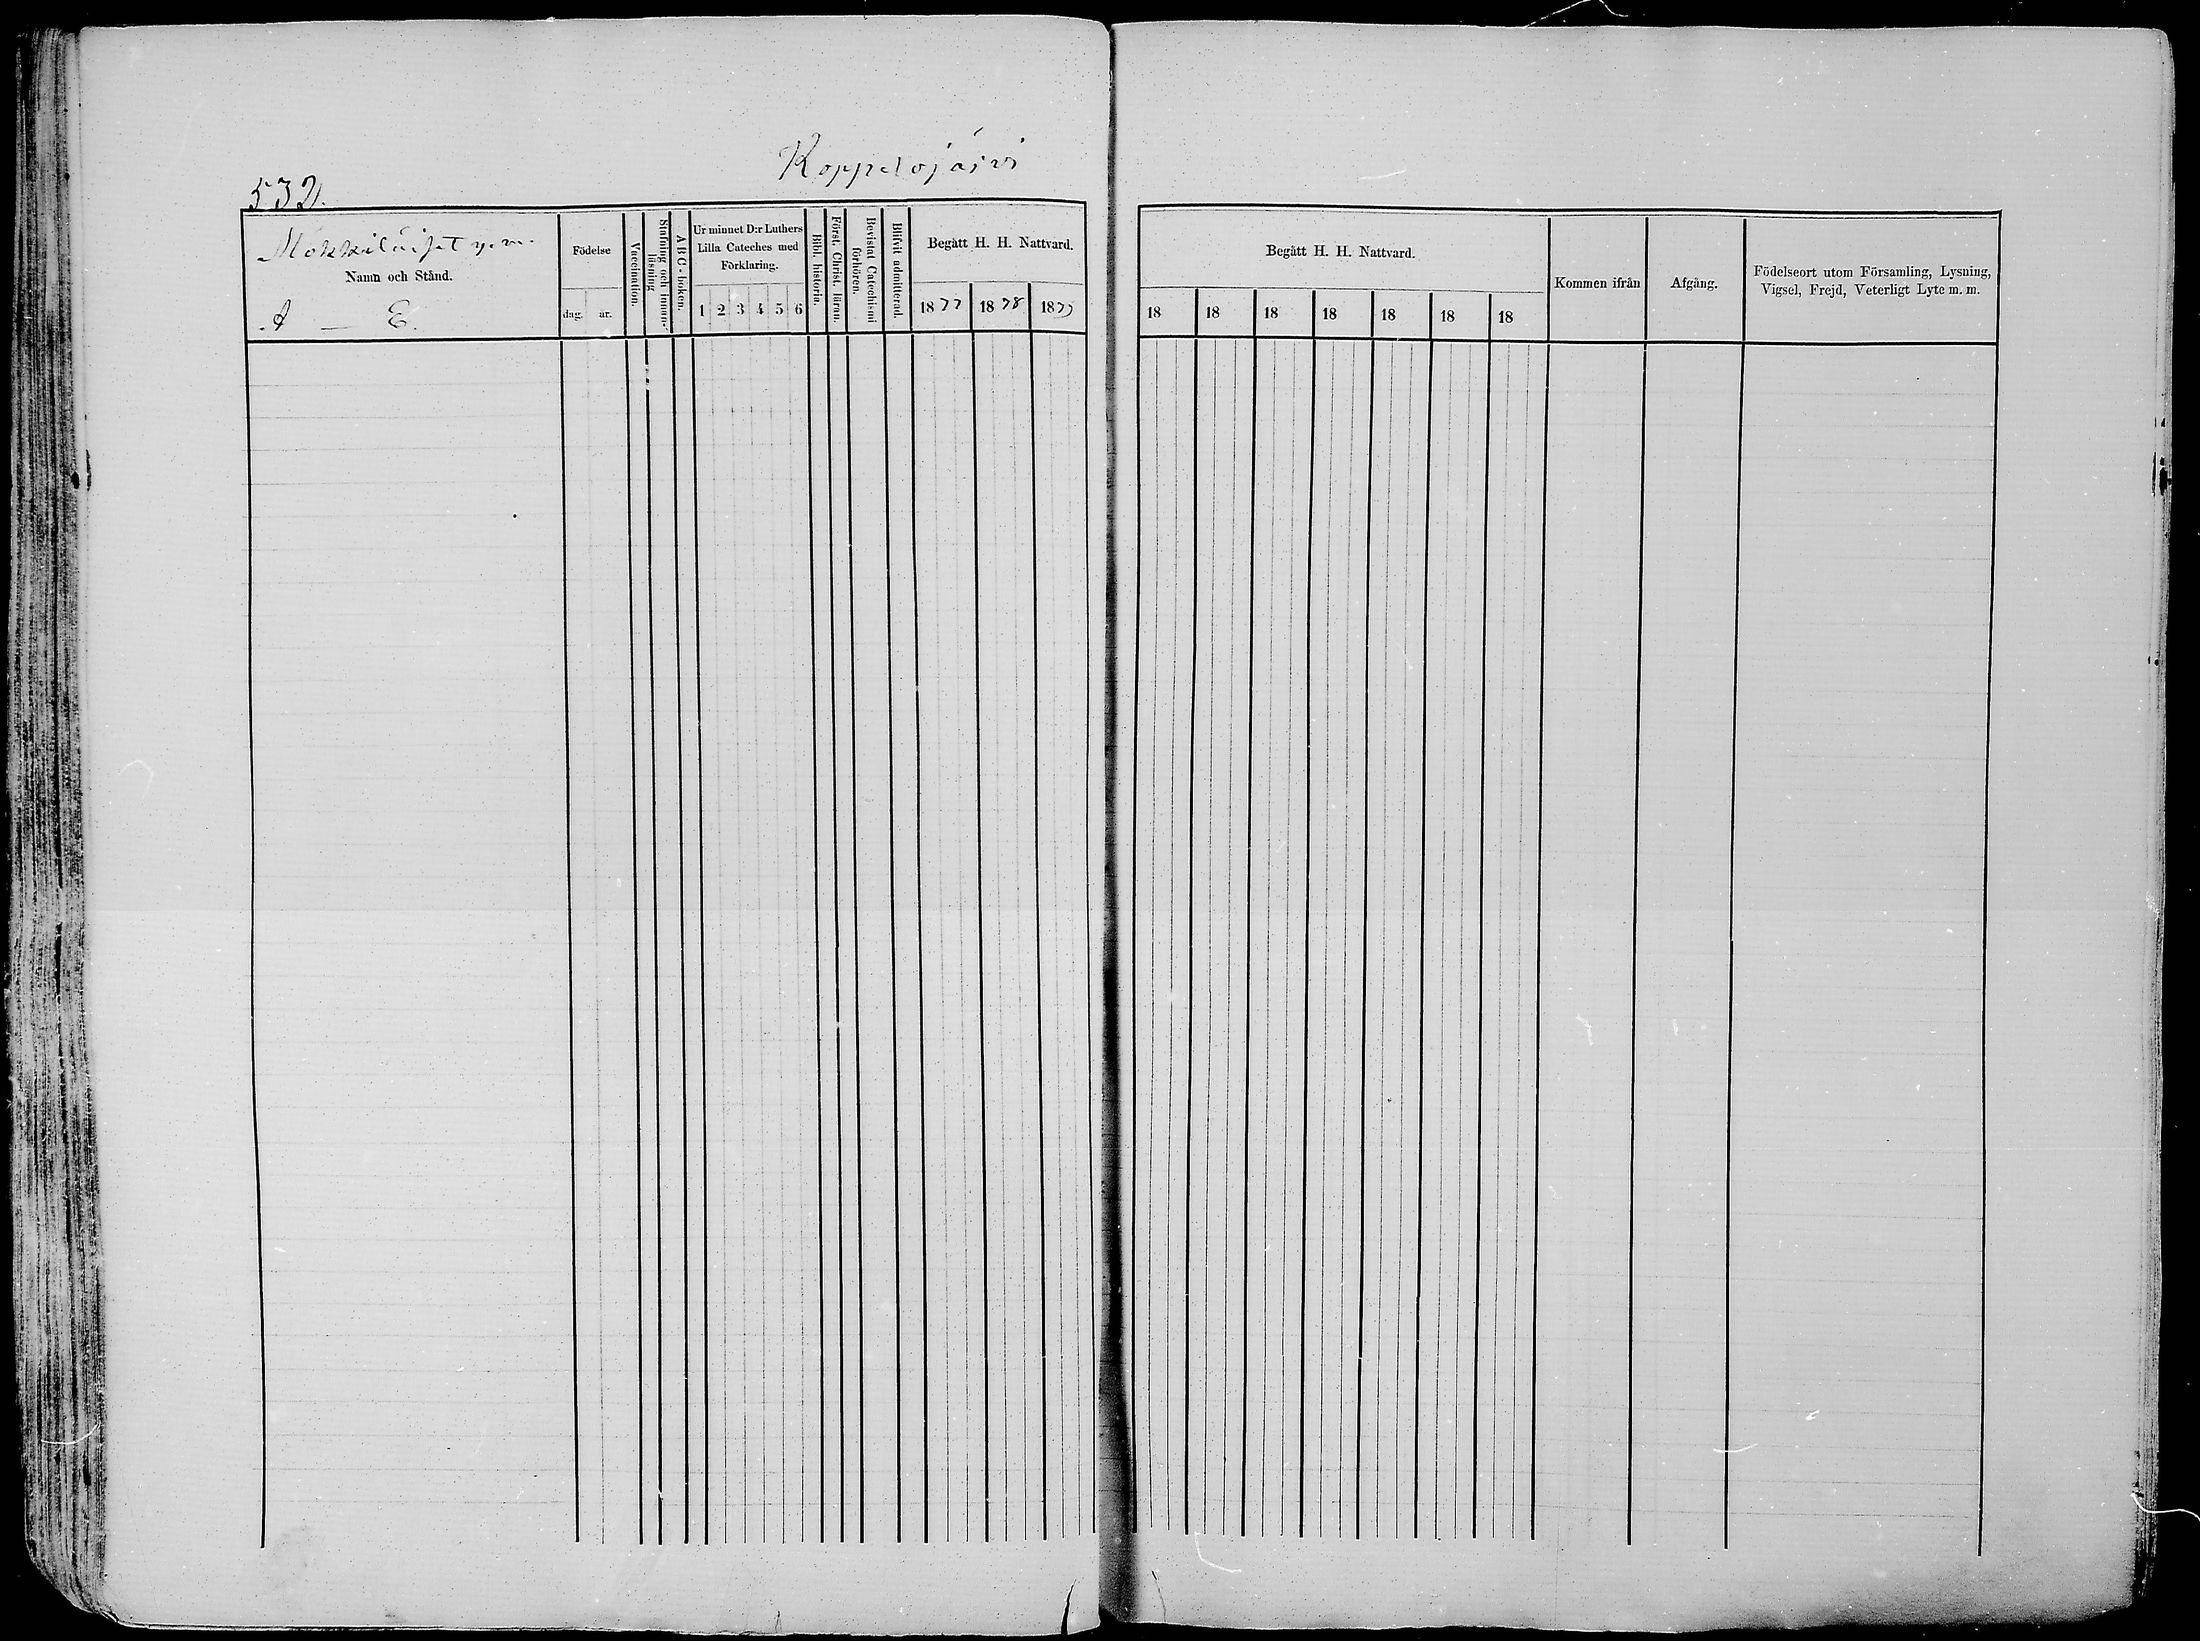 Koppelojärvi
532.
Mökkiläiset y.m.
Namn och Stånd.
A — E.
Födelse
dag. år.
Vaccination.
Stafning och innan-
läsning
A B C-boken.
Ur minnet D:r Luthers
Lilla Cateches med
Förklaring.
1 2 3 4 5 6
Bibl. historia.
Först. Christ. läran.
Bevistat Catechismi
förhören.
Blifvit admitterad.
Begått H. H. Nattvard.
1877 1878 1879
Begått H. H. Nattvard.
18 18 18 18 18 18 18
Kommen ifrån
Afgång.
Födelseort utom Församling, Lysning,
Vigsel, Frejd, Veterligt Lyte m. m.